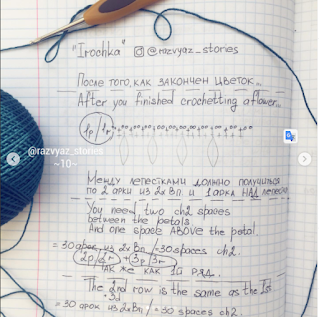 "Irochka" @razvyaz_stories
После того, как закончен цветок...
After you finished crochetting a flower...
1р/1r
@razvyaz_stories
~10~
Между лепестками должно получиться
по 2 арки из 2х ВП и 1 арка НАД лепестком
You need two ch2 spaces
between the petals
And one space ABOVE the petal.
= 30 арок из 2х Вп / = 30 spaces ch2.
2р/2r + 3р/3r
так же как 1й ряд.
The 2nd row is the same as the 1st
+ 3rd
= 30 арок из 2х ВП / = 30 spaces ch2.